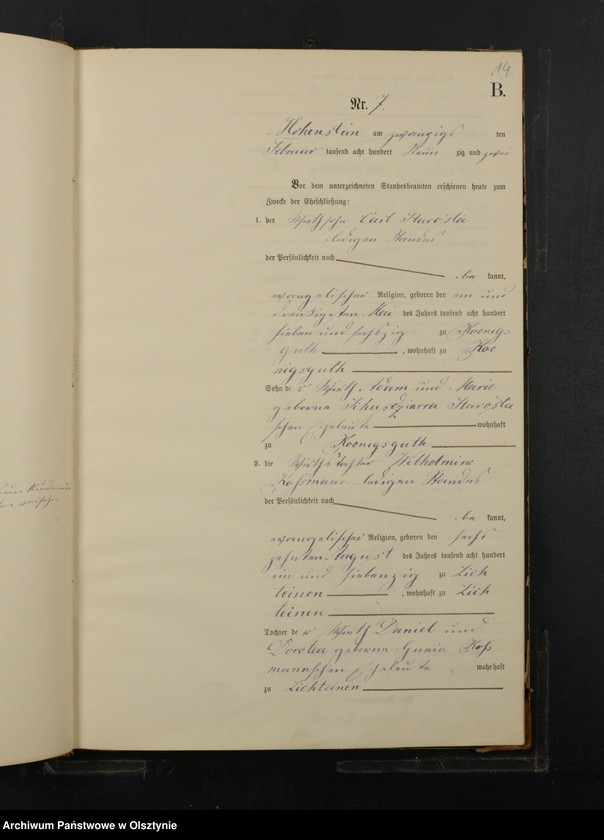 14
B.
Nr. 7.
Hohenstein am zwanzigs ten
Februar tausend acht hundert Neun zig und zwei
Vor dem unterzeichneten Standesbeamten erschienen heute zum
Zwecke der Eheschließung:
1. der Wirthssohn Carl Starosta
ledigen Standes
der Persönlichkeit nach
be kannt,
evangelischer Religion, geboren den ein und
dreißigsten Mai des Jahres tausend acht hundert
sieben und sechszig zu Koenigs
guth, wohnhaft zu Koe
nigsguth
Sohn des Wirth Adam und Marie
geborene Starosta
schen Eheleute wohnhaft
zu Koenigsguth
2. die Wirthstochter Wilhelmine
Koßmann, ledigen Standes
der Persönlichkeit nach
be kannt,
evangelischer Religion, geboren den sechs
zehnten August des Jahres tausend acht hundert
ein und siebenzig zu Lich
teinen, wohnhaft zu Lich
teinen
Tochter der Wirth Daniel und
Dorothea geborene Gunia Koß
mannschen Eheleute wohnhaft
zu Lichteinen
Archiwum Państwowe w Olsztynie